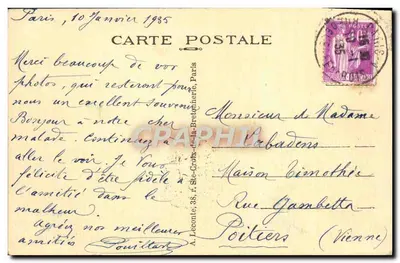 Paris, 10 Janvier 1935
CARTE POSTALE
Merci beaucoup de vos
photos, qui resteront pour
nous un excellent souvenir
Bonjour à notre cher
malade. Continuez à
aller le voir. Je vous
félicite d'être fidèle à
l'amitié dans le
malheur.
Agréez nos meilleures
amitiés
Pouillart
A. Leconte, 38, r. Ste-Croix-de-la-Bretonnerie, Paris
Monsieur de Madame
Labadens
Maison Timothée
Rue Gambetta
Poitiers
(Vienne)
CPAPHIL